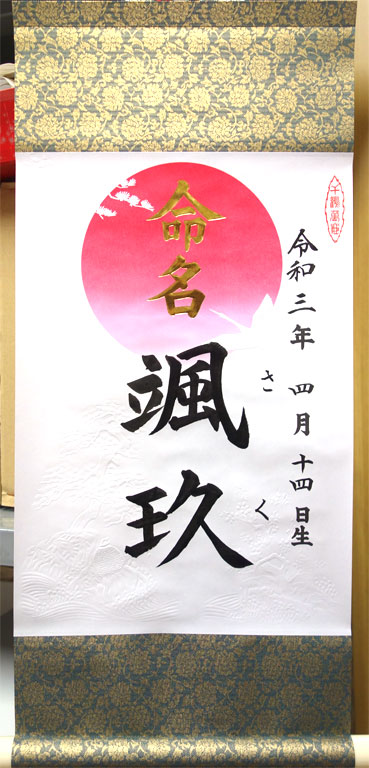 令和三年 四月 十四日生
命名
颯玖
さく